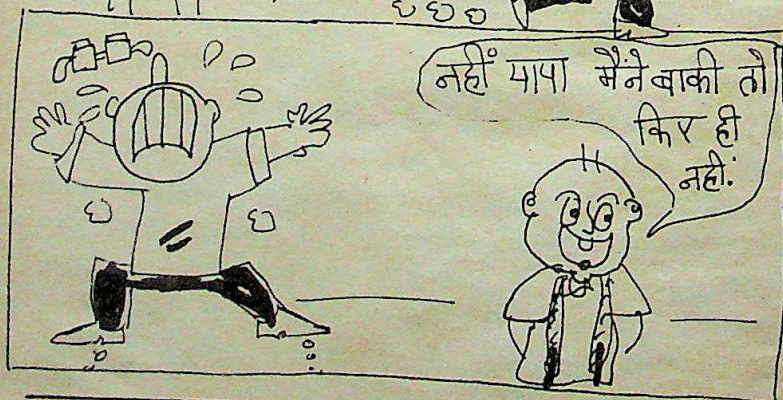 नहीं पापा मैंने बाकी तो
किए ही
नहीं.